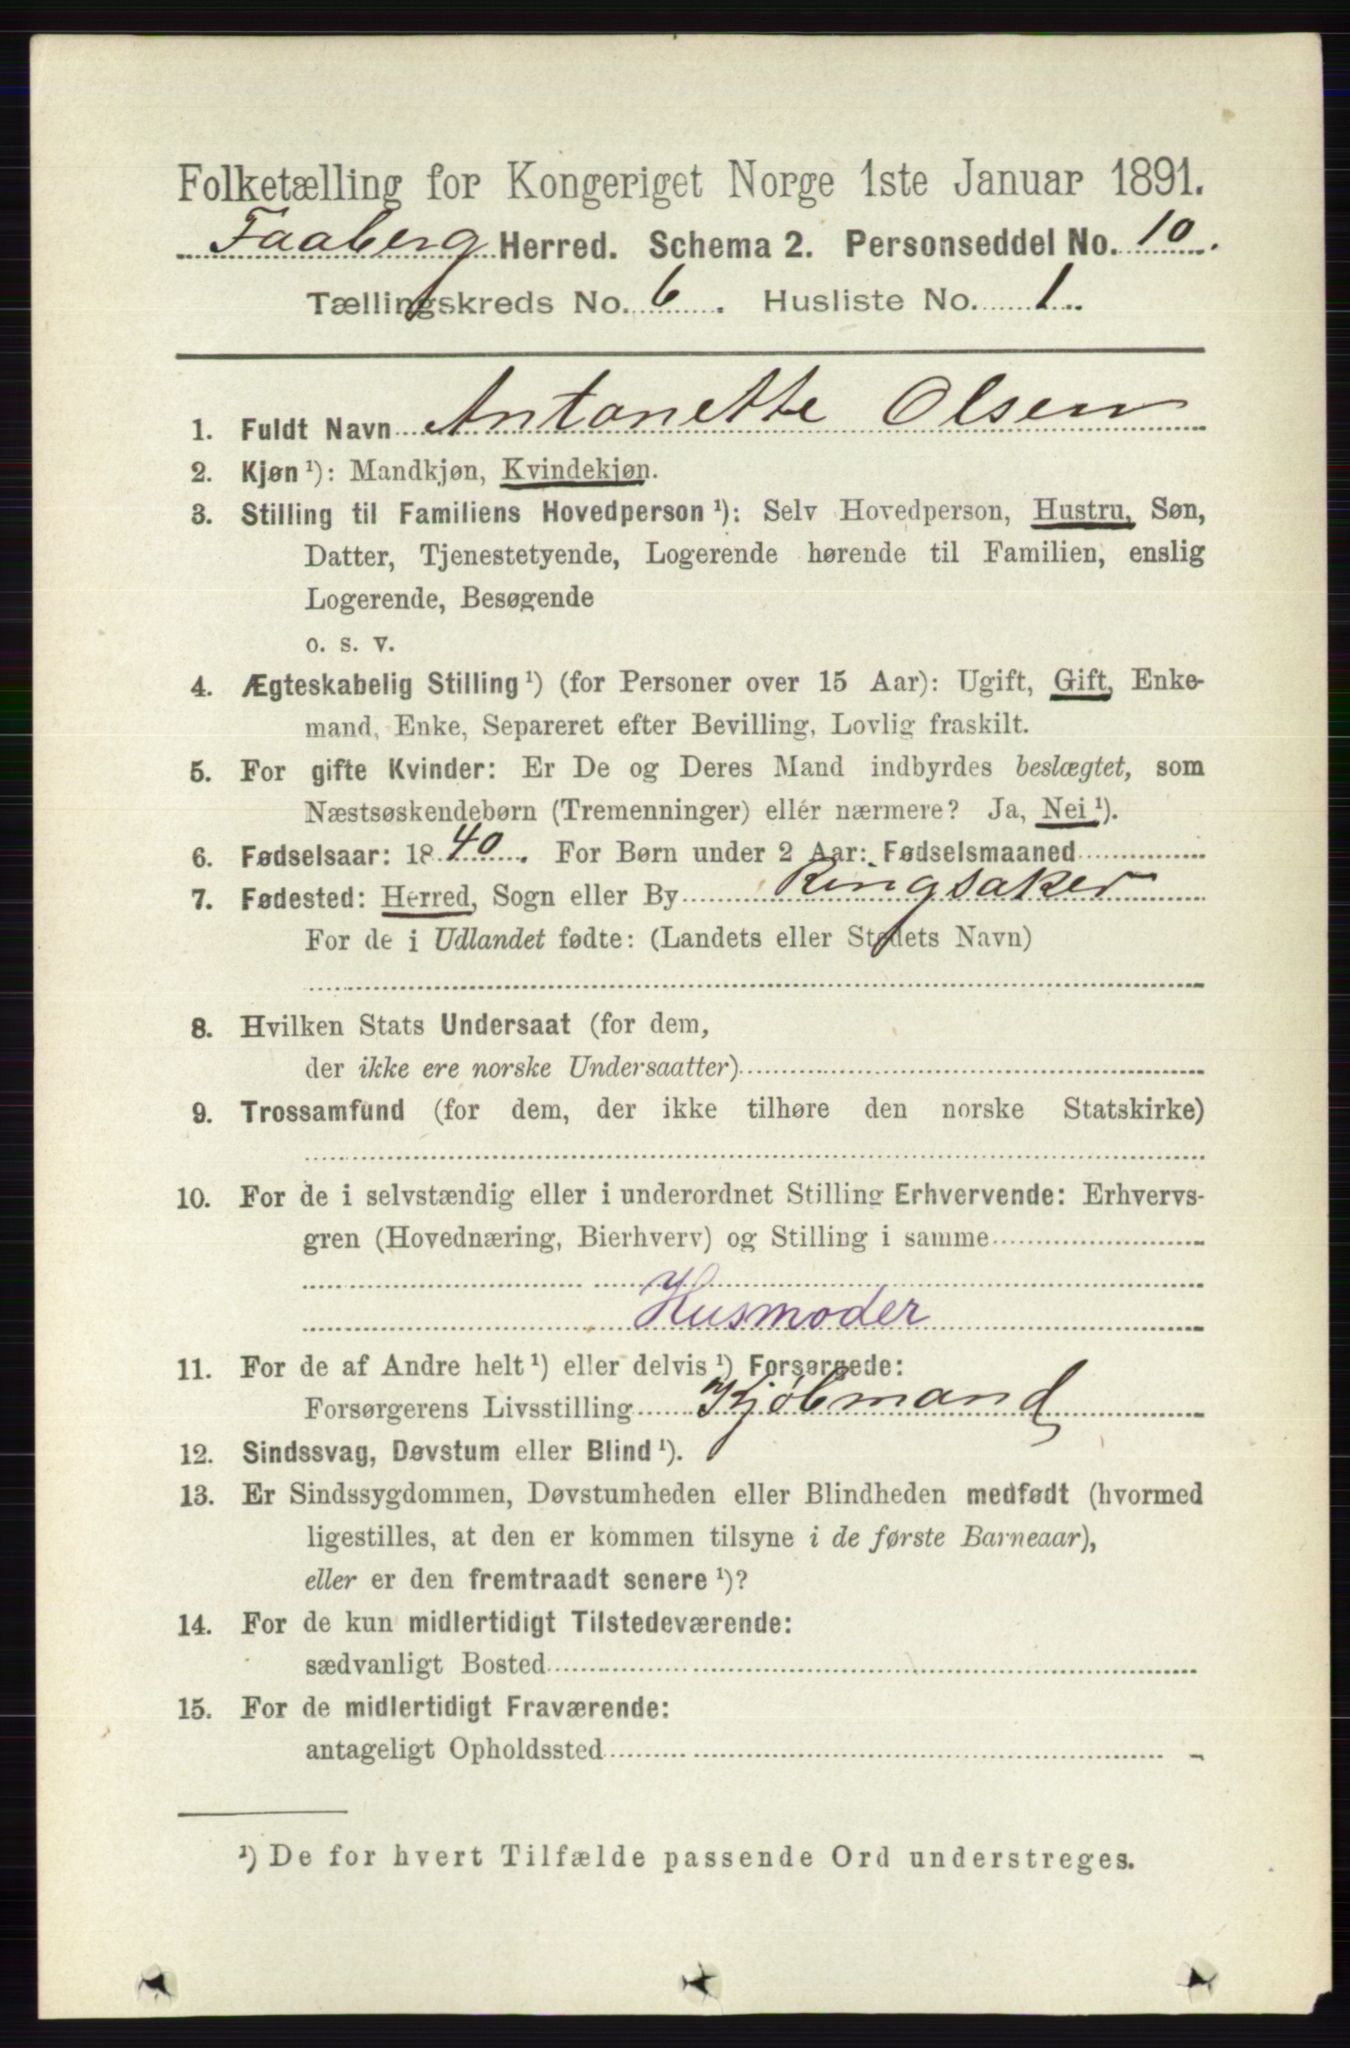 Folketælling for Kongeriget Norge 1ste Januar 1891.
Faaberg Herred. Schema 2. Personseddel No. 10.
Tællingskreds No. 6. Husliste No. 1.
1. Fuldt Navn Antonette Olsen
2. Kjøn ¹): Mandkjøn, Kvindekjøn.
3. Stilling til Familiens Hovedperson ¹): Selv Hovedperson, Hustru, Søn,
Datter, Tjenestetyende, Logerende hørende til Familien, enslig
Logerende, Besøgende
o. s. v.
4. Ægteskabelig Stilling ¹) (for Personer over 15 Aar): Ugift, Gift, Enke-
mand, Enke, Separeret efter Bevilling, Lovlig fraskilt.
5. For gifte Kvinder: Er De og Deres Mand indbyrdes beslægtet, som
Næstsøskendebørn (Tremenninger) ellér nærmere? Ja, Nei ¹).
6. Fødselsaar: 1840. For Børn under 2 Aar: Fødselsmaaned
7. Fødested: Herred, Sogn eller By Ringsaker
For de i Udlandet fødte: (Landets eller Stedets Navn)
8. Hvilken Stats Undersaat (for dem,
der ikke ere norske Undersaatter)
9. Trossamfund (for dem, der ikke tilhøre den norske Statskirke)
10. For de i selvstændig eller i underordnet Stilling Erhvervende: Erhvervs-
gren (Hovednæring, Bierhverv) og Stilling i samme
Husmoder
11. For de af Andre helt ¹) eller delvis ¹) Forsørgede:
Forsørgerens Livsstilling Kjøbmand
12. Sindssvag, Døvstum eller Blind ¹).
13. Er Sindssygdommen, Døvstumheden eller Blindheden medfødt (hvormed
ligestilles, at den er kommen tilsyne i de første Barneaar),
eller er den fremtraadt senere ¹)?
14. For de kun midlertidigt Tilstedeværende:
sædvanligt Bosted
15. For de midlertidigt Fraværende:
antageligt Opholdssted
¹) De for hvert Tilfælde passende Ord understreges.